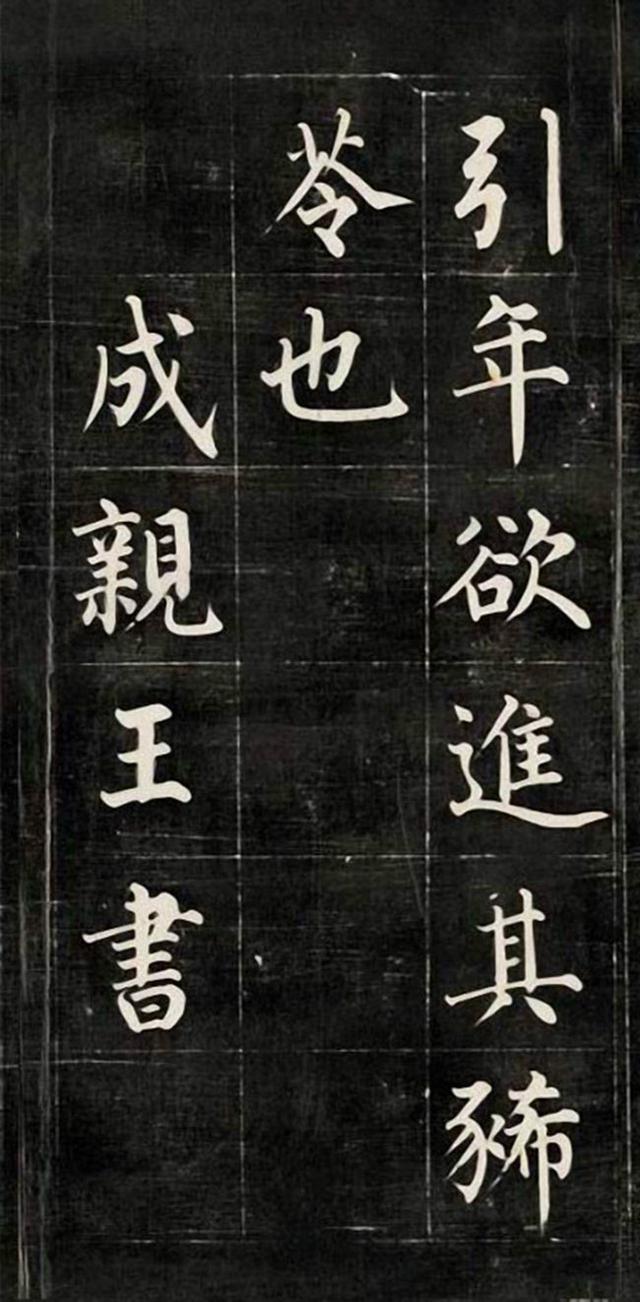 引年欲進其豨
苓也
成親王書